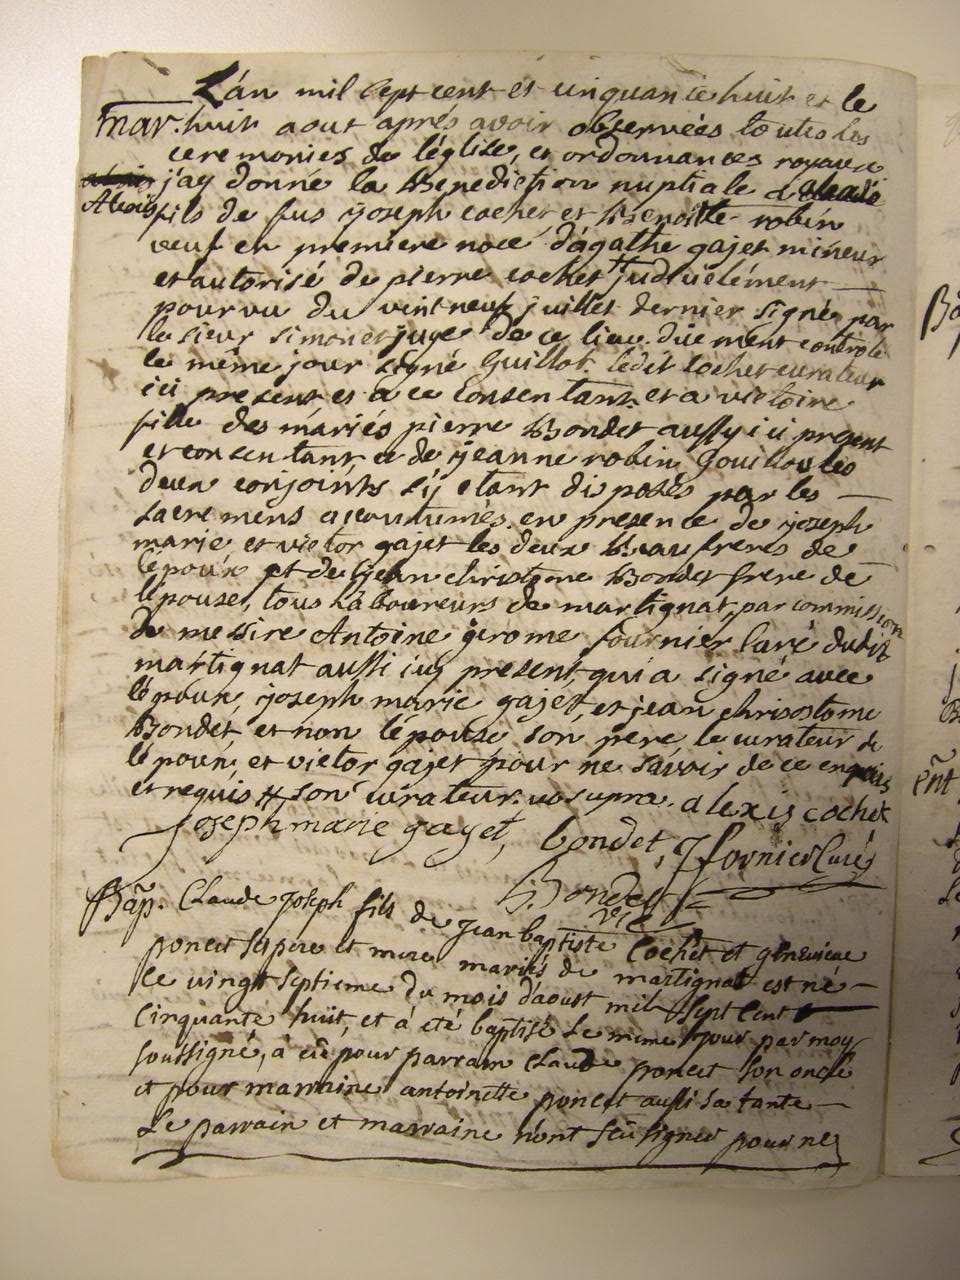 L'an mil sept cent et cinquante huit et le
mar. huit aout aprés avoir observées toutes les
ceremonies de l'église, et ordonnances royaux
j'ay donné la Benediction nuptiale a
Alexis fils de fus joseph cochet et Benoitte robin
veuf en premiere noce d'agathe gajet mineur
et autorisé de pierre cochet
pourvu du vint neuf juillet dernier signé par
le sieur simonet juge de ce lieu. düement controlé
le même jour signé Guillot. lédit cochet curateur
ici present et a ce Consentant. et a victoire
fille des mariés pierre Bondet aussy ici present
et consentant et de jeanne robin
deux conjoints sÿ etant disposés par les
sacremens accoutumés. en presence de joseph
marie et victor gajet les deux Beaufreres de
l'époux et de jean christome Bondet frere de
l'épouse, tous Laboureurs de martignat, par commission
de messire Antoine jerome fournier Curé dudit
martignat aussi icy present, qui a signé avec
l'époux, joseph marie gajet, et jean chrisostome
Bondet et non l'épouse son pere le curateur de
l'époux, et victor gajet pour ne sávoir de ce enquis
et requis # son curateur. ut supra. alexis cochet
Joseph marie gayet, bondet, J fornier Curé
Bondet
vic
Bap. Claude Joseph fils de Jean baptiste Cochet et genevieve
poncet ses pere et mere mariés de martignat est né
le vingt septieme du mois d'aoust mil sept cent
cinquante huit, et à eté baptisé le meme jour par moy
soussigné, à eû pour parrain Claude poncet son oncle
et pour marraine antoinette poncet aussi sa tante
Le parrain et marraine n'ont seû signer pour ne